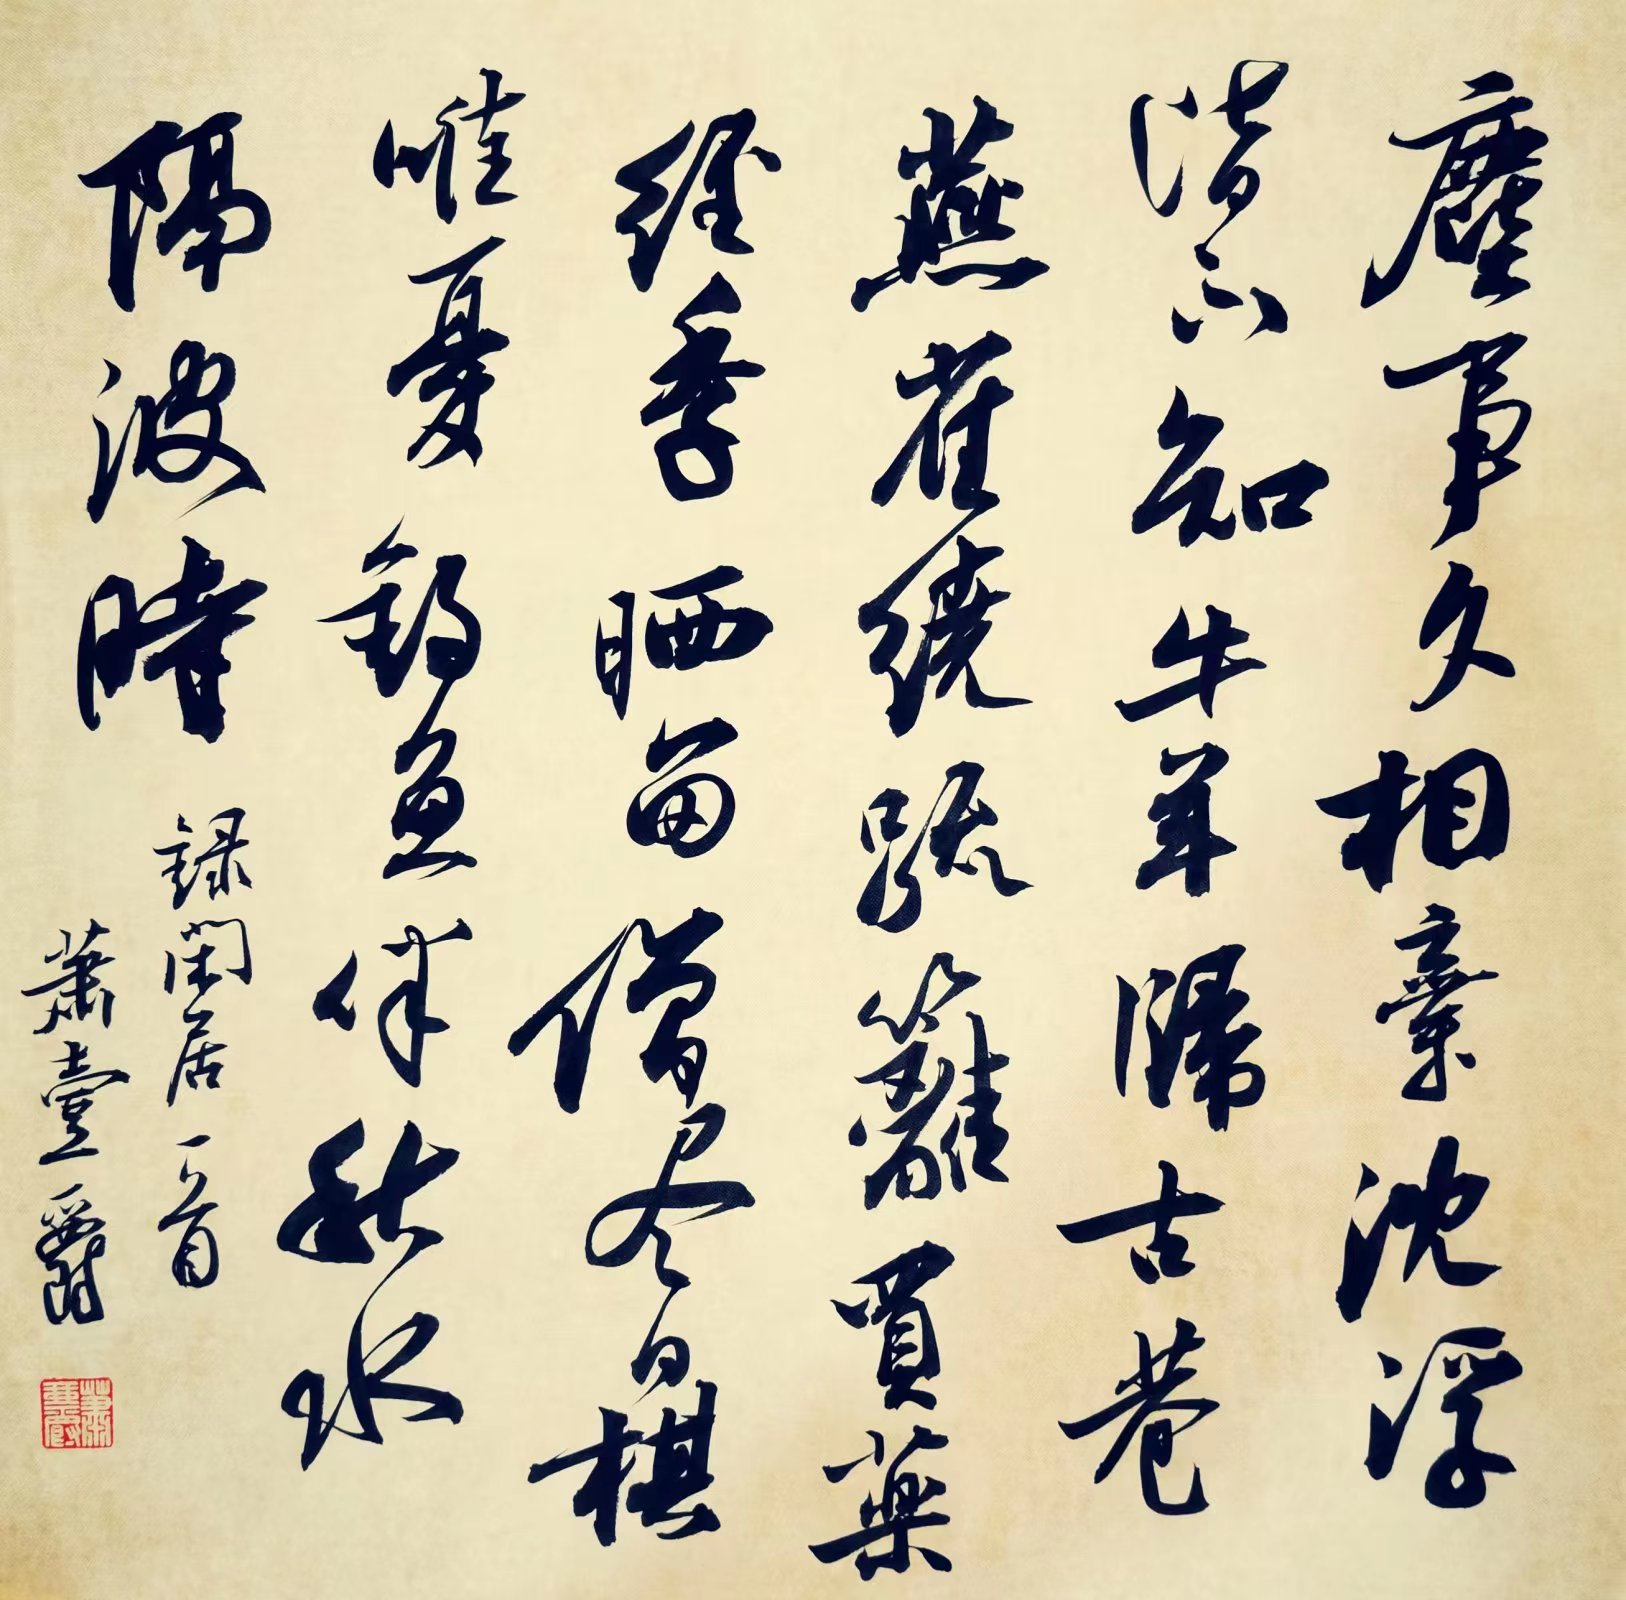 塵事久相棄沈浮
皆不知牛羊歸古巷
燕雀繞疏籬買藥
經季曬留僧尽日棋
唯憂釣魚伴秋水
隔波時
録閑居一首
蕭壹爵